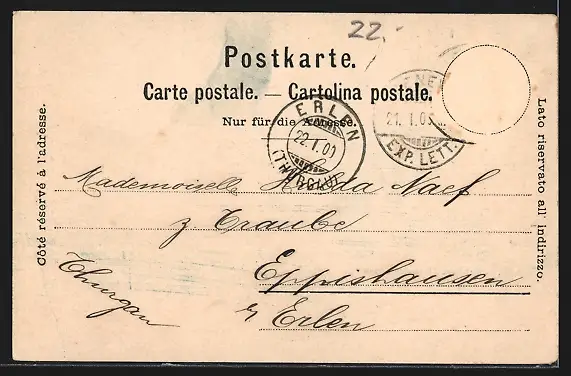 22.-
Postkarte.
Carte postale. — Cartolina postale.
Nur für die Adresse.
Côté réservé à l'adresse.
Lato riservato all' indirizzo.
ERLEN
22.I.01
(THURGAU)
21.I.01
EXP. LETT.
Mademoiselle Hulda Naef
z Traube
Eppishausen
Thurgau
b/ Erlen